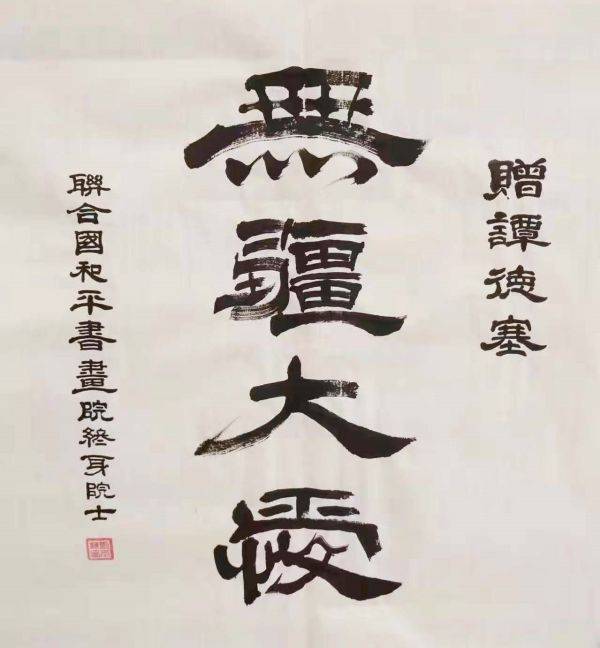 贈譚德塞
無疆大愛
聯合國和平書畫院終身院士